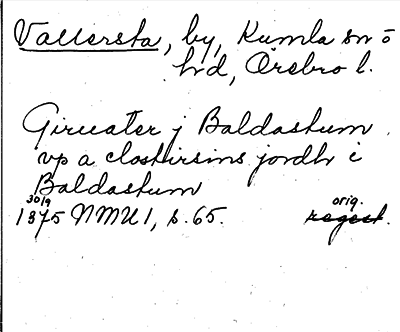 Vallersta, by, Kumla sn o
hd, Örebro l.
Giruater j Baldastum
vp a closthirsins jordh i
Baldastum
30/9
1375 NMU 1, s. 65.
orig.
regest.